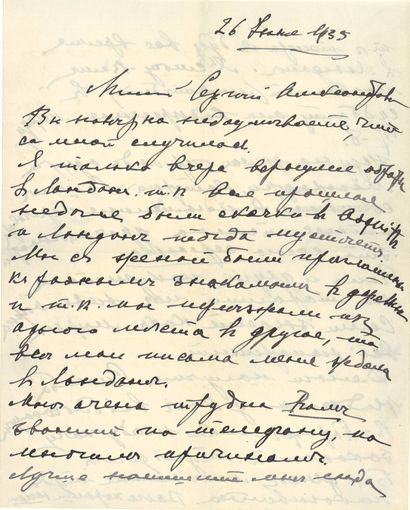 26 Июня 1935
Милый Сергей Александрович
Вы наверно недоумеваете, что
со мной случилось.
Я только вчера вернулся обратно
в Лондонъ. т.к. всю прошлую
недѣлю были скачки в
и Лондонъ тогда пустѣетъ.
Мы съ были приглашены
къ разнымъ знакомымъ в деревню
и т.к. мы переѣзжали изъ
одного мѣста в другое, то
все мои письма меня ждали
в Лондонѣ.
Мнѣ очень трудно Вамъ
звонить по телефону, по
многимъ причинамъ.
Лучше напишите мнѣ сюда